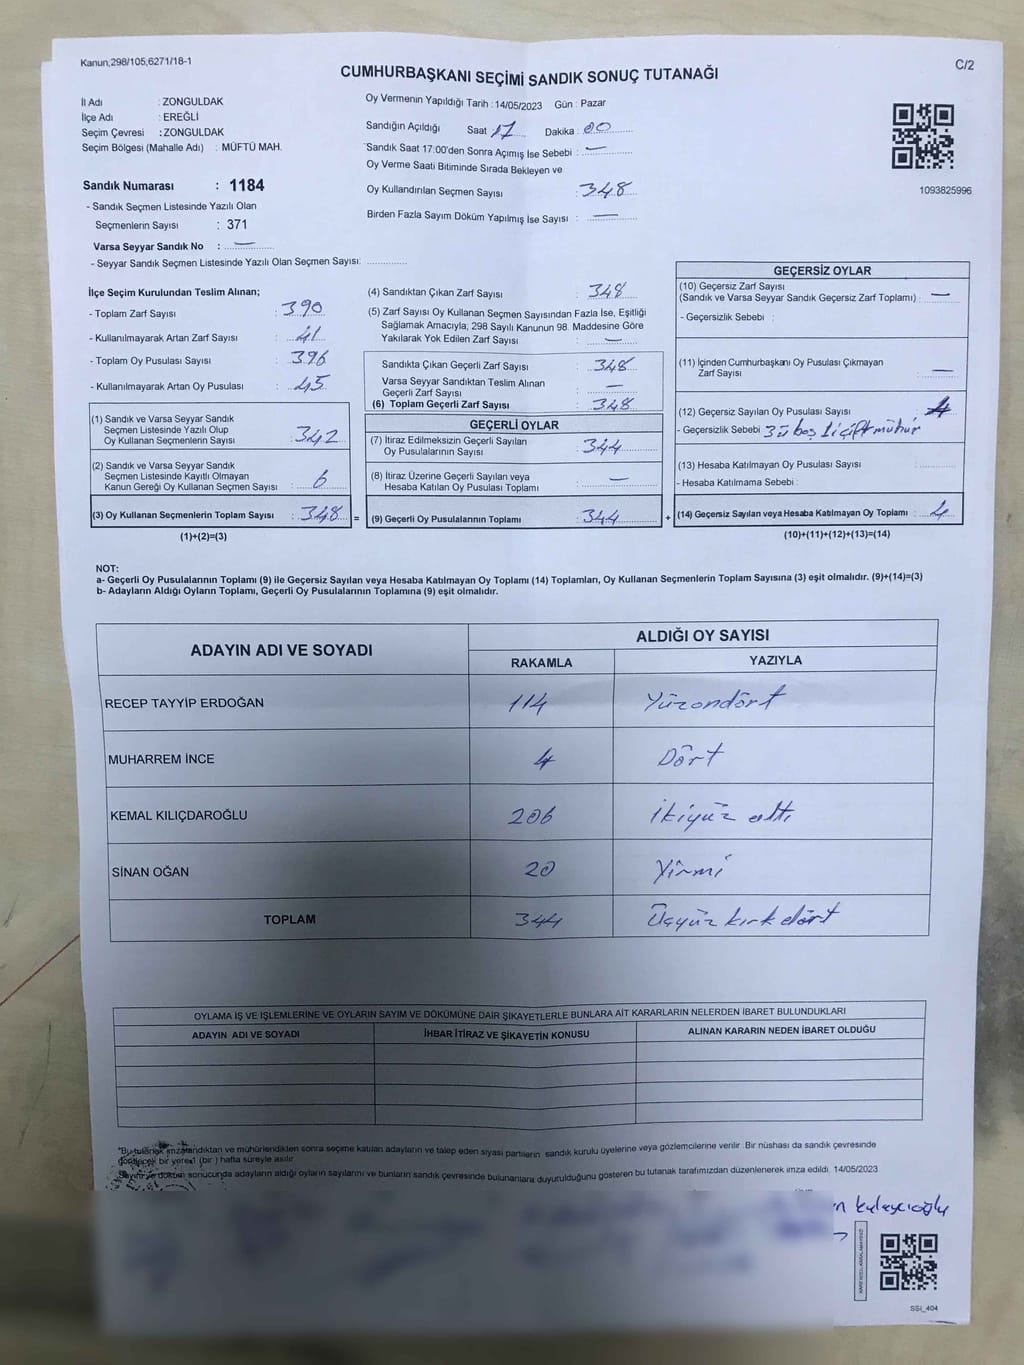 Kanun;298/105;6271/18-1
C/2
CUMHURBAŞKANI SEÇİMİ SANDIK SONUÇ TUTANAĞI
İl Adı : ZONGULDAK
İlçe Adı : EREĞLİ
Seçim Çevresi : ZONGULDAK
Seçim Bölgesi (Mahalle Adı) : MÜFTÜ MAH.
Oy Vermenin Yapıldığı Tarih : 14/05/2023 Gün : Pazar
Sandığın Açıldığı Saat 17 Dakika : 00
Sandık Saat 17:00'den Sonra Açımış İse Sebebi : —
Oy Verme Saati Bitiminde Sırada Bekleyen ve
Oy Kullandırılan Seçmen Sayısı : 348
Birden Fazla Sayım Döküm Yapılmış İse Sayısı : —
1093825996
Sandık Numarası : 1184
- Sandık Seçmen Listesinde Yazılı Olan
Seçmenlerin Sayısı : 371
Varsa Seyyar Sandık No : —
- Seyyar Sandık Seçmen Listesinde Yazılı Olan Seçmen Sayısı:
İlçe Seçim Kurulundan Teslim Alınan;
- Toplam Zarf Sayısı : 390
- Kullanılmayarak Artan Zarf Sayısı : 41
- Toplam Oy Pusulası Sayısı : 396
- Kullanılmayarak Artan Oy Pusulası : 45
(1) Sandık ve Varsa Seyyar Sandık
Seçmen Listesinde Yazılı Olup
Oy Kullanan Seçmenlerin Sayısı : 342
(2) Sandık ve Varsa Seyyar Sandık
Seçmen Listesinde Kayıtlı Olmayan
Kanun Gereği Oy Kullanan Seçmen Sayısı : 6
(3) Oy Kullanan Seçmenlerin Toplam Sayısı : 348 =
(1)+(2)=(3)
(4) Sandıktan Çıkan Zarf Sayısı : 348
(5) Zarf Sayısı Oy Kullanan Seçmen Sayısından Fazla İse, Eşitliği
Sağlamak Amacıyla; 298 Sayılı Kanunun 98. Maddesine Göre
Yakılarak Yok Edilen Zarf Sayısı : —
Sandıkta Çıkan Geçerli Zarf Sayısı : 348
Varsa Seyyar Sandıktan Teslim Alınan
Geçerli Zarf Sayısı : —
(6) Toplam Geçerli Zarf Sayısı : 348
GEÇERLİ OYLAR
(7) İtiraz Edilmeksizin Geçerli Sayılan
Oy Pusulalarının Sayısı : 344
(8) İtiraz Üzerine Geçerli Sayılan veya
Hesaba Katılan Oy Pusulası Toplamı : —
(9) Geçerli Oy Pusulalarının Toplamı : 344 +
GEÇERSİZ OYLAR
(10) Geçersiz Zarf Sayısı
(Sandık ve Varsa Seyyar Sandık Geçersiz Zarf Toplamı) : —
- Geçersizlik Sebebi :
(11) İçinden Cumhurbaşkanı Oy Pusulası Çıkmayan
Zarf Sayısı : —
(12) Geçersiz Sayılan Oy Pusulası Sayısı : 4
- Geçersizlik Sebebi 3ü boş 1i çift mühür
(13) Hesaba Katılmayan Oy Pusulası Sayısı :
- Hesaba Katılmama Sebebi :
(14) Geçersiz Sayılan veya Hesaba Katılmayan Oy Toplamı : 4
(10)+(11)+(12)+(13)=(14)
NOT:
a- Geçerli Oy Pusulalarının Toplamı (9) ile Geçersiz Sayılan veya Hesaba Katılmayan Oy Toplamı (14) Toplamları, Oy Kullanan Seçmenlerin Toplam Sayısına (3) eşit olmalıdır. (9)+(14)=(3)
b- Adayların Aldığı Oyların Toplamı, Geçerli Oy Pusulalarının Toplamına (9) eşit olmalıdır.
ADAYIN ADI VE SOYADI
ALDIĞI OY SAYISI
RAKAMLA YAZIYLA
RECEP TAYYİP ERDOĞAN 114 Yüzondört
MUHARREM İNCE 4 Dört
KEMAL KILIÇDAROĞLU 206 İkiyüz altı
SİNAN OĞAN 20 Yirmi
TOPLAM 344 Üçyüz kırk dört
OYLAMA İŞ VE İŞLEMLERİNE VE OYLARIN SAYIM VE DÖKÜMÜNE DAİR ŞİKAYETLERLE BUNLARA AİT KARARLARIN NELERDEN İBARET BULUNDUKLARI
ADAYIN ADI VE SOYADI İHBAR İTİRAZ VE ŞİKAYETİN KONUSU ALINAN KARARIN NEDEN İBARET OLDUĞU
*Bu tutanak imzalandıktan ve mühürlendikten sonra seçime katılan adayların ve talep eden siyasi partilerin sandık kurulu üyelerine veya gözlemcilerine verilir. Bir nüshası da sandık çevresinde
bir yere 1 (bir) hafta süreyle asılır.
döküm sonucunda adayların aldığı oyların sayılarını ve bunların sandık çevresinde bulunanlara duyurulduğunu gösteren bu tutanak tarafımızdan düzenlenerek imza edildi. 14/05/2023
SSI_404